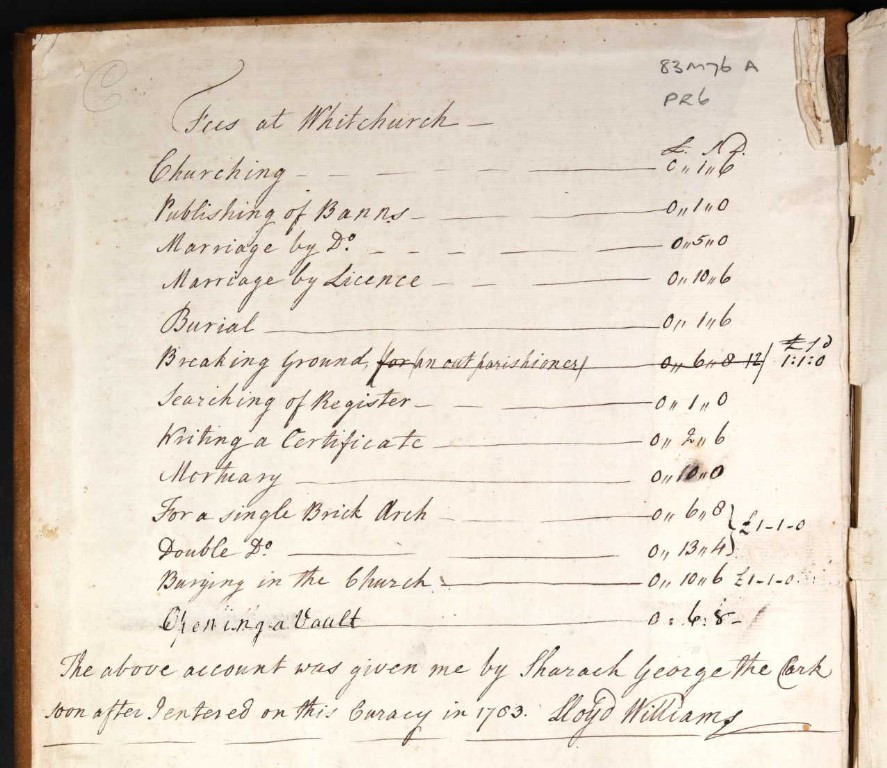 C
83M76 A
PR6
Fees at Whitchurch —
£. s d.
Churching — 0 " 1 " 6
Publishing of Banns — 0 " 1 " 0
Marriage by Do. — 0 " 5 " 0
Marriage by Licence — 0 " 10 " 6
Burial — 0 " 1 " 6
Breaking Ground, for (an out parishioner) — 0 " 6 " 8 £ s d 1:1:0
Searching of Register — 0 " 1 " 0
Writing a Certificate — 0 " 2 " 6
Mortuary — 0 " 10 " 0
For a single Brick Arch — 0 " 6 " 8
Double Do. — 0 " 13 " 4 } £1-1-0
Burying in the Church — 0 " 10 " 6 £1-1-0
Opening a Vault — 0 : 6 : 8 –
The above account was given me by Sharach George the Clark
soon after I entered on this Curacy in 1783. Lloyd Williams